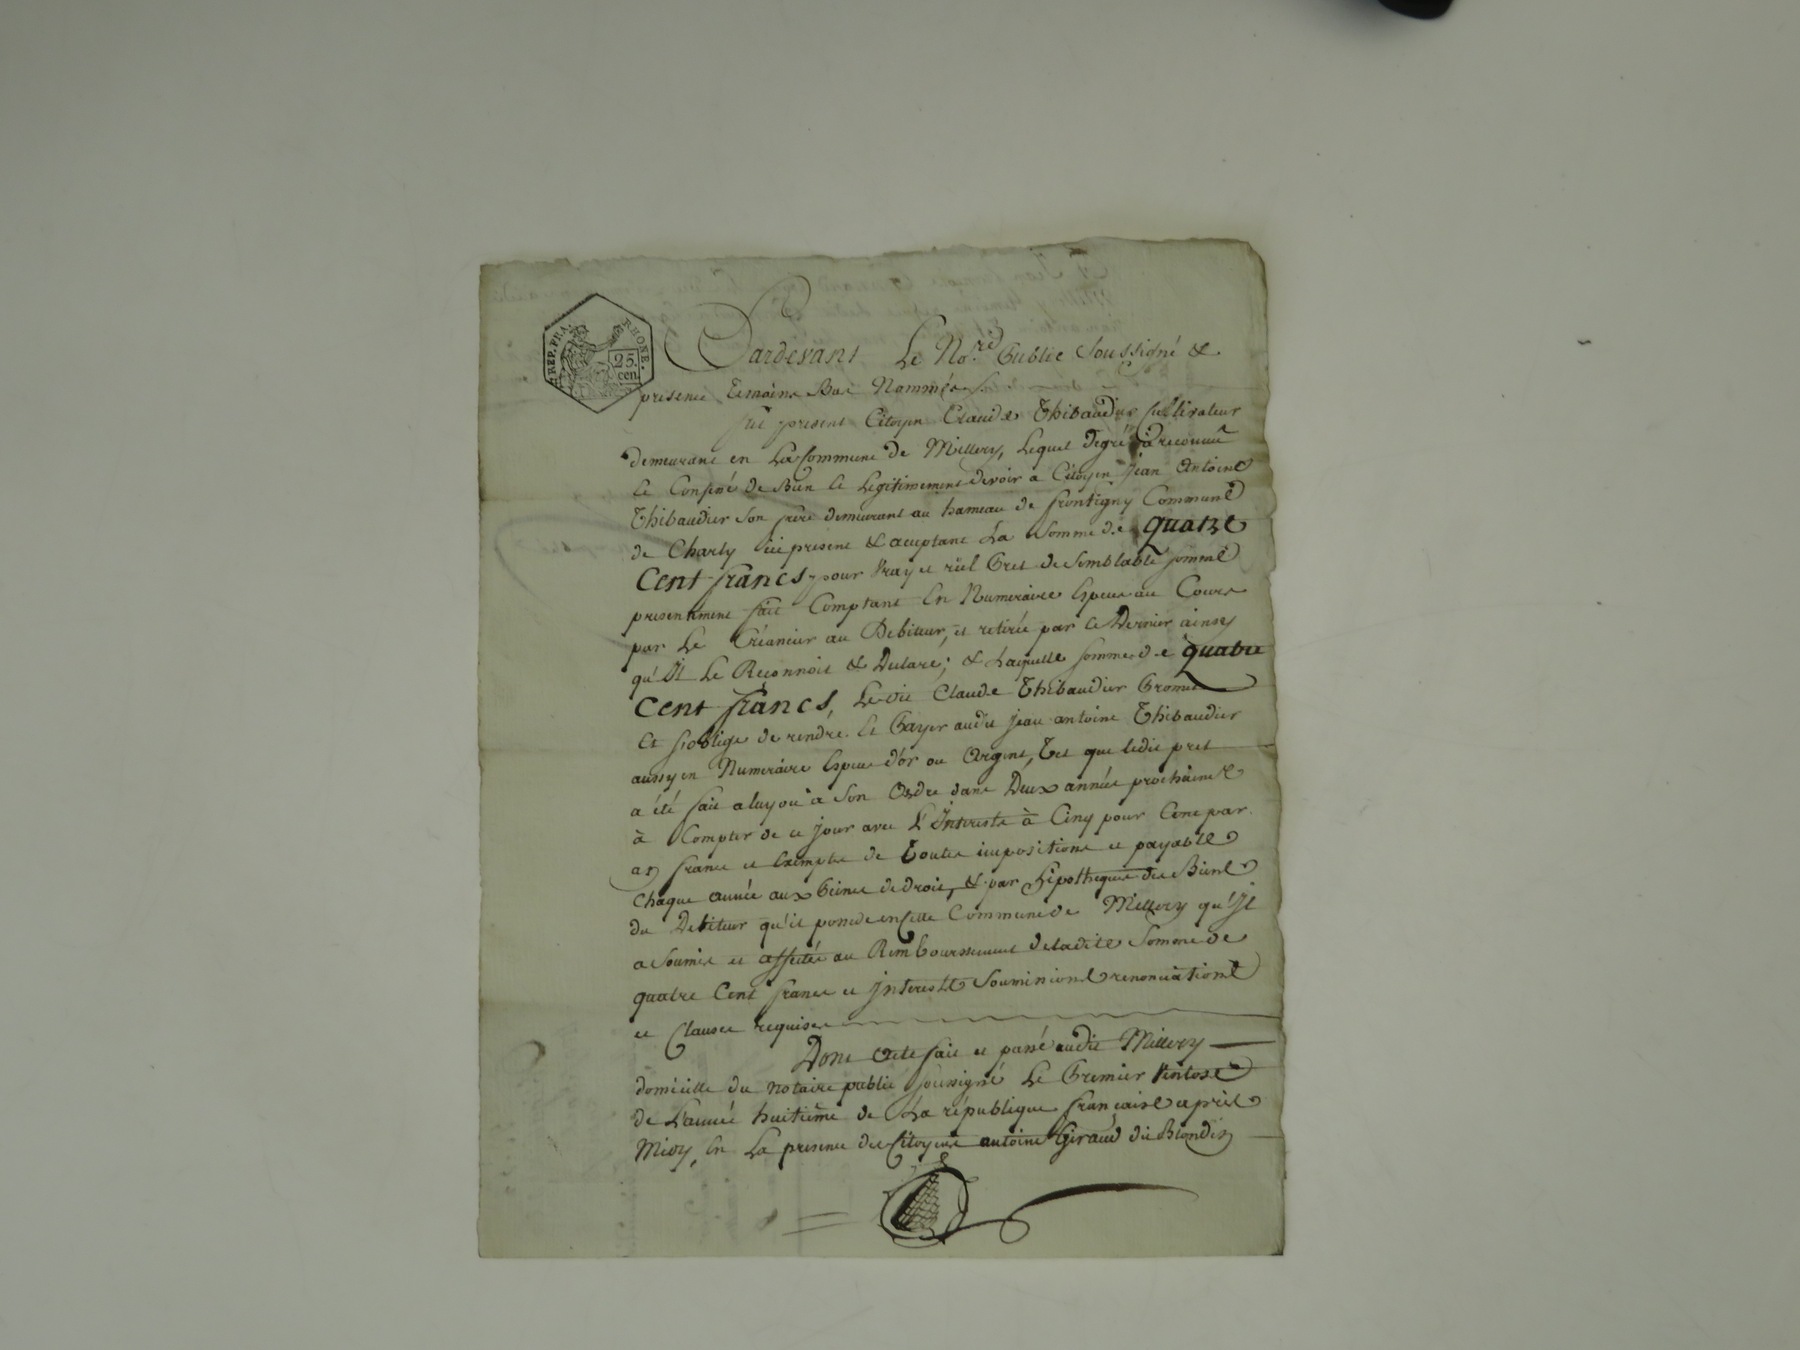 REP. FRA. RHONE.
25. cen.
Pardevant Le No.re Public Soussigné &
presence Temoins Bas Nommés
fut present Citoyen Claude Thibaudier Cultivateur
demeurant en La Commune de Millery, Lequel degré à reconnu
et Confessé de Bien et Legitimement devoir a Citoyen Jean Antoine
Thibaudier Son frere demeurant au hameau de frontigny Commune
de Charly ici present & aceptant La Somme de quatre
Cent francs, pour Vray et réel Pret de Semblable Somme
presentement fait Comptant En Numeraire Espece au Cours
par Le Créancier au Debiteur, et retirée par Ce Dernier ainsy
qu'Il Le Reconnoit & Declare; & Laquelle Somme de quatre
Cent francs, Ledit Claude Thibaudier Promet
Et S'oblige de rendre Et Payer audit Jean antoine Thibaudier
aussy en Numeraire Espece d'or ou Argent, Tel que ledit pret
a été fait a luy ou à Son Ordre dans Deux années prochaines
à Compter de ce Jour avec L'Interests à Cinq pour Cent par
an francs et Exempts de Toutes impositions et payable
Chaque année aux Peines de Droit, & par hipotheque des Biens
du Debiteur qu'il possede en Cette Commune de Millery qu'Il
a Soumis et affectés au Remboursement de ladite Somme de
quatre Cent francs et Interests Soumissions renonciations
et Clauses requises
Dont Acte fait et passé audit Millery
domicille du notaire public soussigné Le Premier Ventose
de L'année huitième de La république française après
Midy, En La presence des Citoyens antoine Giraud dit Blondin